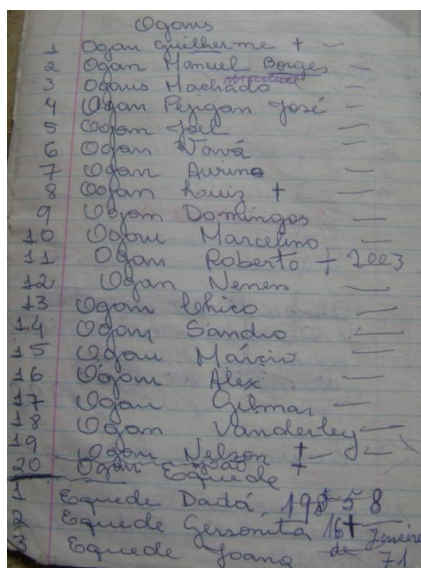 Ogans
1 Ogan Guilherme + —
2 Ogan Manuel Borges —
3 Ogans Machado —
4 Ogan Pejigan José —
5 Ogan Joel —
6 Ogan Vavá —
7 Ogan Aurino —
8 Ogan Luiz + —
9 Ogan Domingos —
10 Ogan Marcelino —
11 Ogan Roberto + 2003
12 Ogan Nenem —
13 Ogan Chico —
14 Ogan Sandro —
15 Ogan Márcio —
16 Ogan Alex —
17 Ogan Gilmar —
18 Ogan Vanderley —
19 Ogan Nelson + —
20 Ogan João +
Equede
1 Equede Dadá, 1958
2 Equede Gersonita 16 + Janeiro
3 Equede Joana de 71